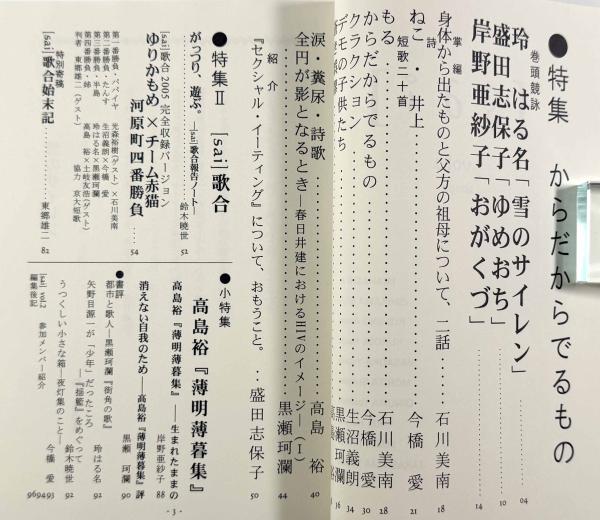 ●特集 からだからでるもの
巻頭競詠
玲 はる名「雪のサイレン」 04
盛田志保子「ゆめおち」 10
岸野亜紗子「おがくづ」 14
掌編
身体から出たものと父方の祖母について、二話…… 石川美南 18
詩
ねこ・井上 今橋 愛 21
短歌二十首
もる 石川美南
からだからでるもの 今橋 愛 30
クラクション 生沼義朗 34
デモの子供たち 黒瀬珂瀾
涙・糞尿・詩歌 高島 裕 40
全円が影となるとき―春日井建におけるHIVのイメージ―(Ⅰ) 黒瀬珂瀾 44
紹介
『セクシャル・イーティング』について、おもうこと。 盛田志保子 50
●特集Ⅱ [sai]歌合
がっつり、遊ぶ。―[sai]歌合報告ノート― 鈴木暁世 52
[sai]歌合2005完全収録バージョン
ゆりかもめ×チーム赤猫
河原町四番勝負 54
第一番勝負・パパイヤ 光森裕樹(ゲスト)×石川美南
第二番勝負・たんす 生沼義朗×今橋 愛
第三番勝負・半島 玲はる名×黒瀬珂瀾
第四番勝負・姉 高島 裕×土岐友浩(ゲスト)
判者 東郷雄二(ゲスト) 協力 京大短歌
特別寄稿
[sai]歌合始末記 東郷雄二 82
●小特集 高島裕『薄明薄暮集』
高島裕『薄明薄暮集』―生まれたままの 岸野亜紗子 88
消えない自我のため―高島裕『薄明薄暮集』評 黒瀬 珂瀾 90
●書評
都市と歌人―黒瀬珂瀾『街角の歌』 玲はる名 92
矢野目源一が「少年」だったころ
―『揺籃』をめぐって 鈴木暁世 92
うつくしい小さな箱―夜灯集のこと― 今橋 愛 93
[sai] vol.2 参加メンバー紹介 94
編集後記 96
- 3 -